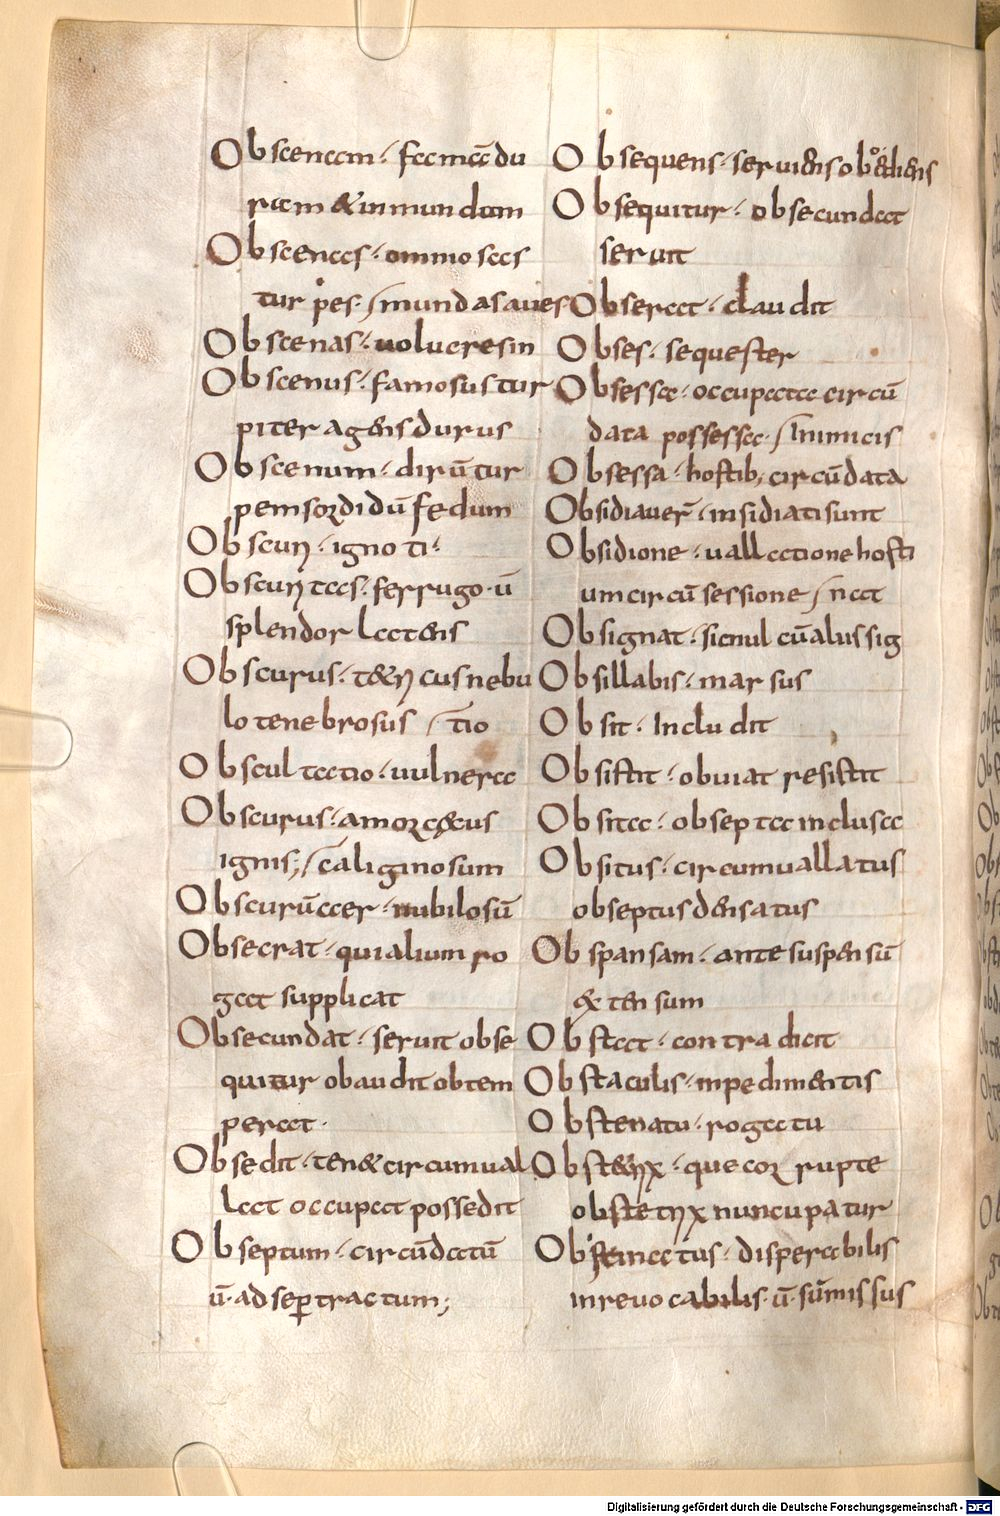 Obscenam· famēdu
ram & inmundam
Obscenas· ominosas
tur pes· mundas aues
Obscenas· uolucres in
Obscenus· famosus tur
piter agens durus
Obscenum· dirū tur
pem sordidū fedum
Obscuri· ignoti·
Obscuritas· ferrugo· ū
splendor latens
Obscurus· tetricus nebu
lo tenebrosus tio
Obscultatio· uulnera
Obscurus· amor cęcus
ignis; caliginosum
Obscurū aer· nubilosū
Obsecrat· qui alium ro
gat supplicat
Obsecundat· seruit obse
quitur obaudit obtem
perat·
Obsedit· tenet circumual
lat occupat possedit
Obseptum· circūdatū
ū· adseptractum;
Obsequens· seruiens obędiens
Obsequitur· obsecundat
seruit
Obserat· claudit
Obses· sequester
Obsessa· occupata circū
data possessa· Inimicis
Obsessa· hostib; circūdata
Obsidiauer̄· insidiati sunt
Obsidione· uallatione hosti
um circū sessione nat
Obsignat· simul cū alus sig
Obsillabis· marsus
Obsit· Includit
Obsistit· obuiat resistit
Obsita· obsepta inclusa
Obsitus· circumuallatus
obseptus densatus
Obspansam· ante suspensū
& tensum
Obstat· contradicit
Obstaculis· inpedimentis
Obstenatu· rogatu
Obstetrix· que corrupte
obstetrix nuncupatur
Obstinatus· disperabilis
inreuocabilis· ū· sūmissus
Digitalisierung gefördert durch die Deutsche Forschungsgemeinschaft - DFG